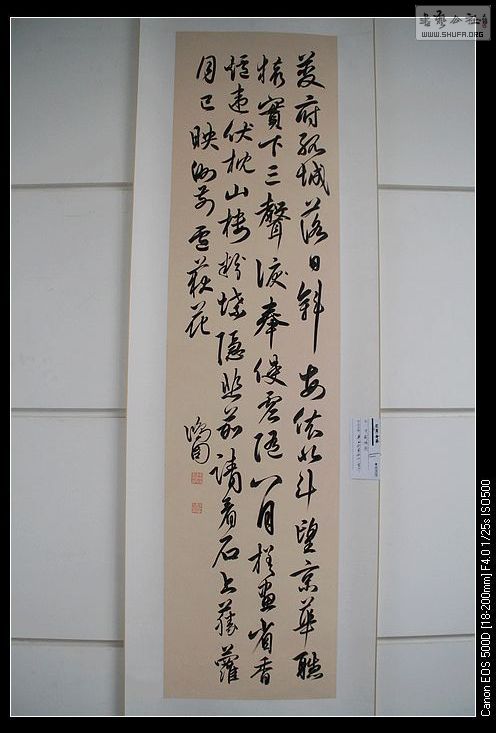 夔府孤城落日斜每依北斗望京華聽
猿實下三聲淚奉使虛隨八月槎畫省香
爐違伏枕山樓粉堞隱悲笳請看石上藤蘿
月已映洲前蘆荻花
書藝公社
WWW.SHUFA.ORG
Canon EOS 500D [18-200mm] F4.0 1/25s ISO500